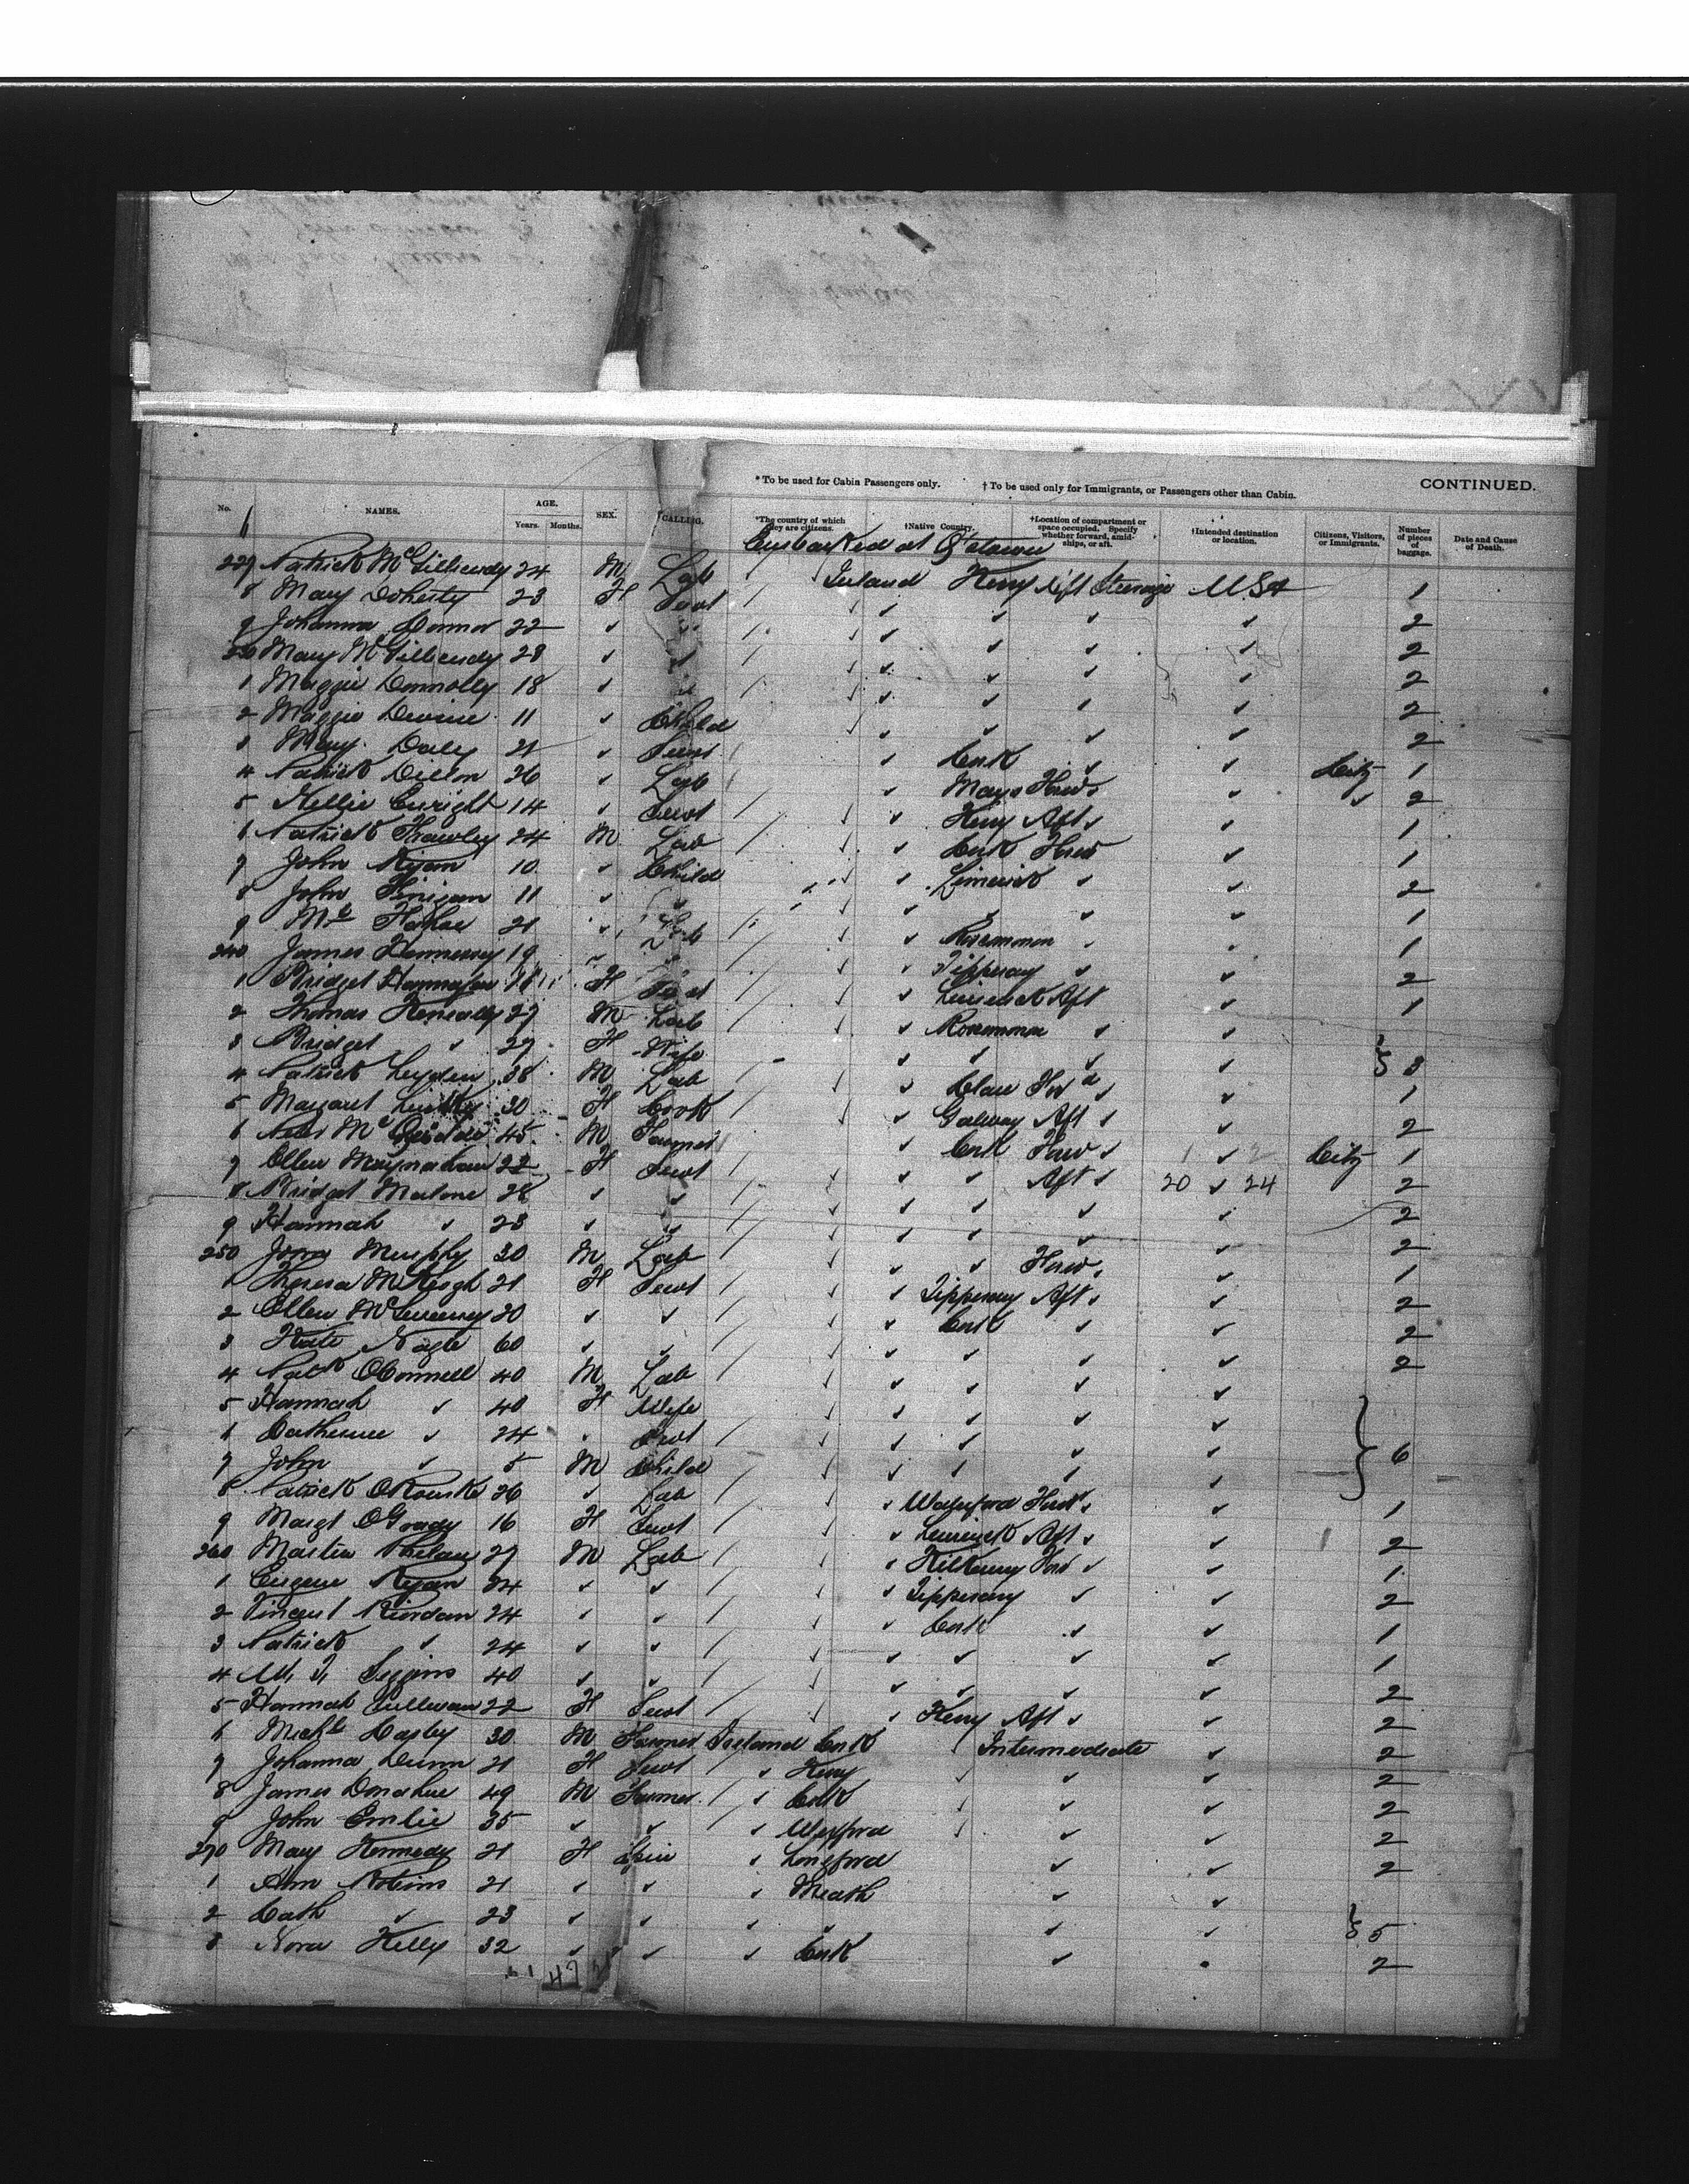 * To be used for Cabin Passengers only. † To be used only for Immigrants, or Passengers other than Cabin. CONTINUED.
No. NAMES. AGE. Years. Months. SEX. CALLING. *The country of which they are citizens. †Native Country. †Location of compartment or space occupied. Specify whether forward, amidships, or aft. †Intended destination or location. Citizens, Visitors, or Immigrants. Number of pieces of baggage. Date and Cause of Death.
Embarked at Q'stown
229 Patrick McGillicudy 24 M Lab Ireland Kerry Aft Steerage USA 1
8 Mary Doherty 23 F Servt 2
9 Johanna Connor 22 2
Mary McGillicudy 28 2
1 Maggie Connolly 18 2
2 Maggie Devine 11 Child 2
3 Mary Daly 21 Servt Cork City 1
4 Patrick Dillon 26 Lab Mayo Forwd 2
5 Nellie Enright 14 Servt Kerry Aft 1
6 Patrick Frawley 24 M Lab Cork Forwd 1
7 John Ryan 10 Child Limerick 2
8 John Finigan 11 1
9 21 Lab Roscommon 1
240 James Hennessy 19 Tipperary 2
1 Bridget F Servt Limerick Aft 1
2 Thomas Keneally 27 M Lab Roscommon
3 Bridget 27 F Wife 3
4 Patrick Leyden 38 M Lab Clare Forwd 1
5 Margaret 30 F Cook Galway Aft 2
6 45 M Farmer Cork Forwd City 1
7 Ellen Moynahan 22 F Servt Aft 20 24 2
8 Bridget Malone 28 2
9 Hannah 23 2
250 John Murphy 30 M Lab Forwd 1
1 Theresa McKeogh 21 F Servt Tipperary Aft 2
2 Ellen McSweeney 20 Cork 2
3 Kate Nagle 60 2
4 Patk OConnell 40 M Lab
5 Hannah 40 F Wife
6 Catherine 24 Servt 6
7 John 5 M Child
8 Patrick ORourke 26 Lab Waterford Forwd 1
9 Margt OGrady 16 F Servt Limerick Aft 2
260 Martin Phelan 27 M Lab Kilkenny Forwd 1
1 Eugene Ryan 24 Tipperary 2
2 Vincent Riordan 24 Cork 1
3 Patrick 24 1
4 Siggins 40 2
5 Hannah Sullivan 22 F Servt Kerry Aft 2
6 Michl Casley 30 M Farmer Ireland Cork Intermediate 2
7 Johanna Dunn 21 F Servt Kerry 2
8 James Donahue 49 M Farmer Cork 2
9 John Emlie 35 Wexford 2
270 Mary Kennedy 21 F Spin Longford 2
1 Ann Robins 21 Meath
2 Cath 23 5
3 Nora Kelly 32 Cork 2
47